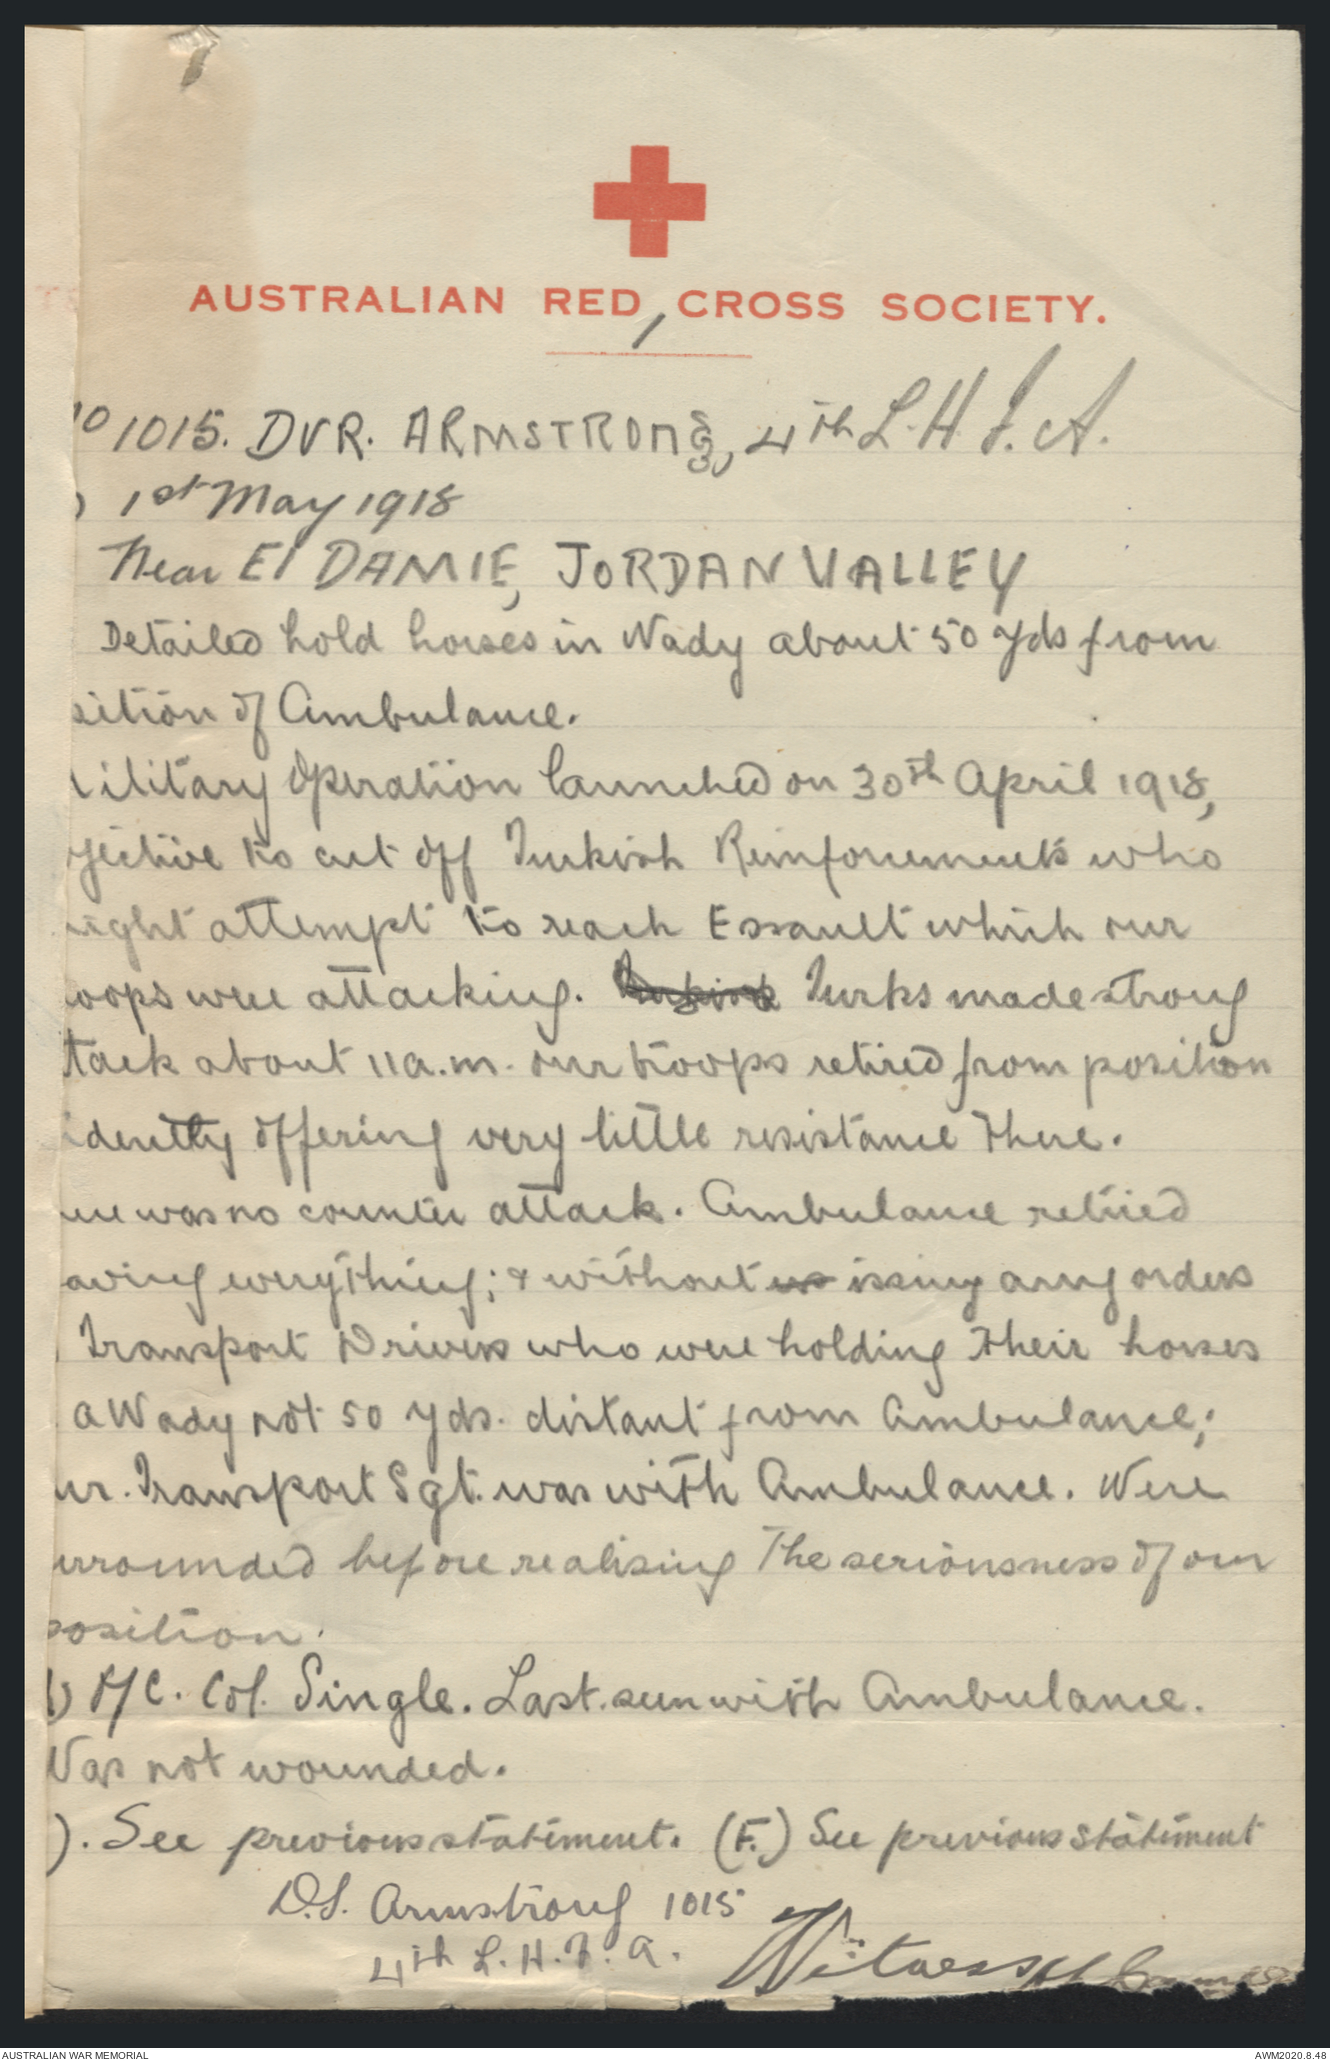 AUSTRALIAN RED CROSS SOCIETY.
1
No 1015. DVR. ARMSTRONG, 4th L.H.F.A.
) 1st May 1918
Near El DAMIE, JORDAN VALLEY
Detailed hold horses in Wady about 50 yds from
sition of Ambulance.
ilitary Operation launched on 30th April 1918,
jective to cut off Turkish Reinforcements who
ight attempt to reach Essault which our
oops were attacking. Turkish Turks made strong
tack about 11 a.m. our troops retired from position
idently offering very little resistance there.
ere was no counter attack. Ambulance retired
aving everything; & without us issuing any orders
Transport Drivers who were holding their horses
a Wady not 50 yds. distant from Ambulance;
ur. Transport Sgt. was with Ambulance. Were
urrounded before realising the seriousness of our
position.
) O/C. Col. Single. Last seen with Ambulance.
Was not wounded.
). See previous statement. (F.) See previous statement
D.S. Armstrong 1015
4th L.H.F.A.
Witness
AUSTRALIAN WAR MEMORIAL
AWM2020.8.48